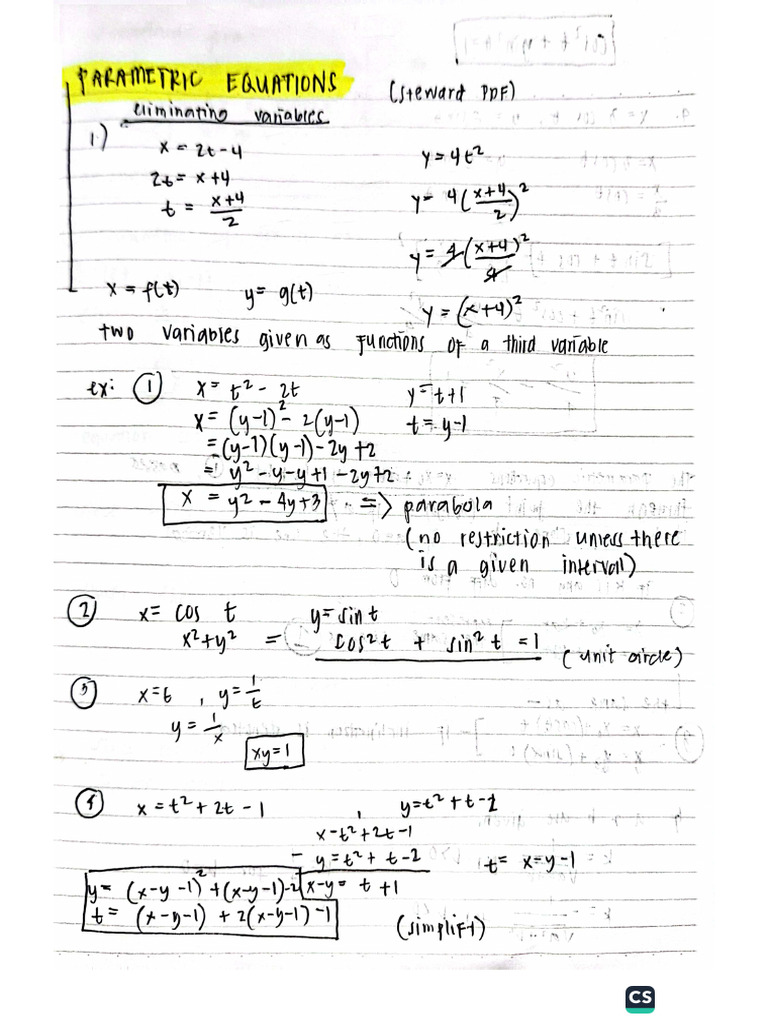 PARAMETRIC EQUATIONS (Steward PDF)
eliminating variables
1) x = 2t - 4 y = 4t²
2t = x + 4 y = 4(x+4/2)²
t = x+4/2
y = 4(x+4)²/4
x = f(t) y = g(t) y = (x+4)²
two variables given as functions of a third variable
ex: ① x = t² - 2t y = t+1
x = (y-1)² - 2(y-1) t = y-1
= (y-1)(y-1) - 2y + 2
= y² - y - y + 1 - 2y + 2
x = y² - 4y + 3 => parabola
(no restriction unless there
is a given interval)
② x = cos t y = sin t
x² + y² = cos²t + sin²t = 1 (unit circle)
③ x = t , y = 1/t
y = 1/x
xy = 1
④ x = t² + 2t - 1 , y = t² + t - 2
x - t² + 2t - 1
- y = t² + t - 2 t = x = y - 1
y = (x-y-1)² + (x-y-1) - 2 x - y = t + 1
t = (x-y-1) + 2(x-y-1) - 1 (simplift)
CS